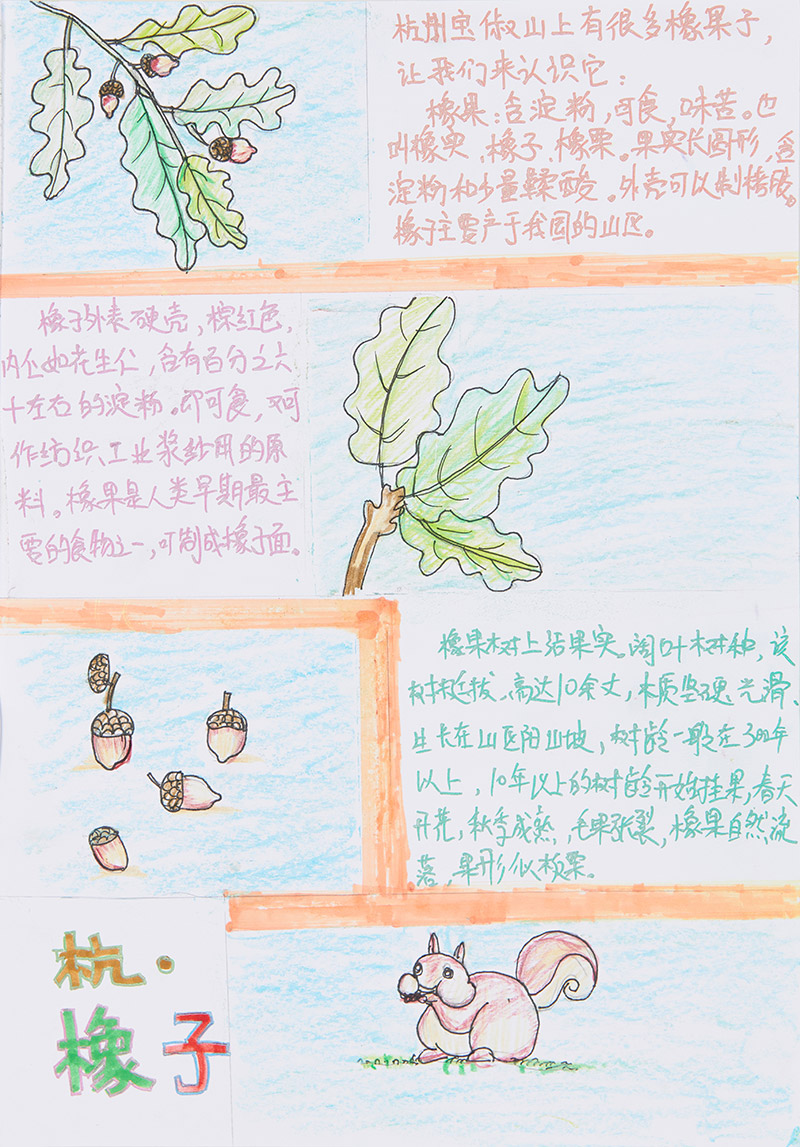 杭州宝俶山上有很多橡果子，
让我们来认识它：
橡果：含淀粉，可食，味苦。也
叫橡实、橡子、橡栗。果实长圆形，含
淀粉和少量鞣酸。外壳可以制栲胶。
橡子主要产于我国的山区。
橡子外表硬壳，棕红色，
内仁如花生仁，含有百分之六
十左右的淀粉。即可食，又可
作纺织工业浆纱用的原
料。橡果是人类早期最主
要的食物之一，可制成橡子面。
橡果树上结果实。阔叶树种，该
树挺拔、高达10余丈，木质坚硬、光滑、
生长在山区阳山坡，树龄一般在300年
以上，10年以上的树龄开始挂果，春天
开花，秋季成熟，毛果张裂，橡果自然流
落，果形似板栗。
杭·
橡子